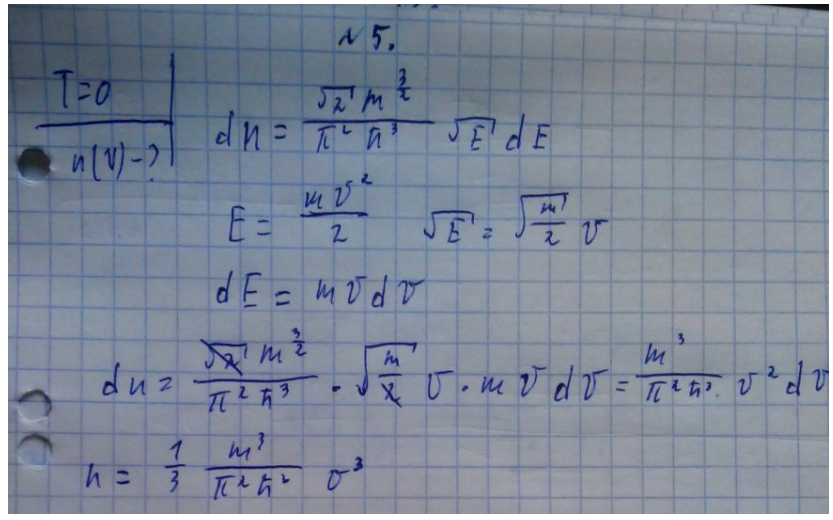 № 5.
T=0
n(V)-?
dn = \frac{\sqrt{2} m^{\frac{3}{2}}}{π² ħ³} \sqrt{E} dE
E = \frac{m v²}{2}   \sqrt{E} = \sqrt{\frac{m}{2}} v
dE = m v d v
dn = \frac{\sqrt{2} m^{\frac{3}{2}}}{π² ħ³} · \sqrt{\frac{m}{2}} v · m v d v = \frac{m³}{π² ħ³} v² d v
n = \frac{1}{3} \frac{m³}{π² ħ²} v³